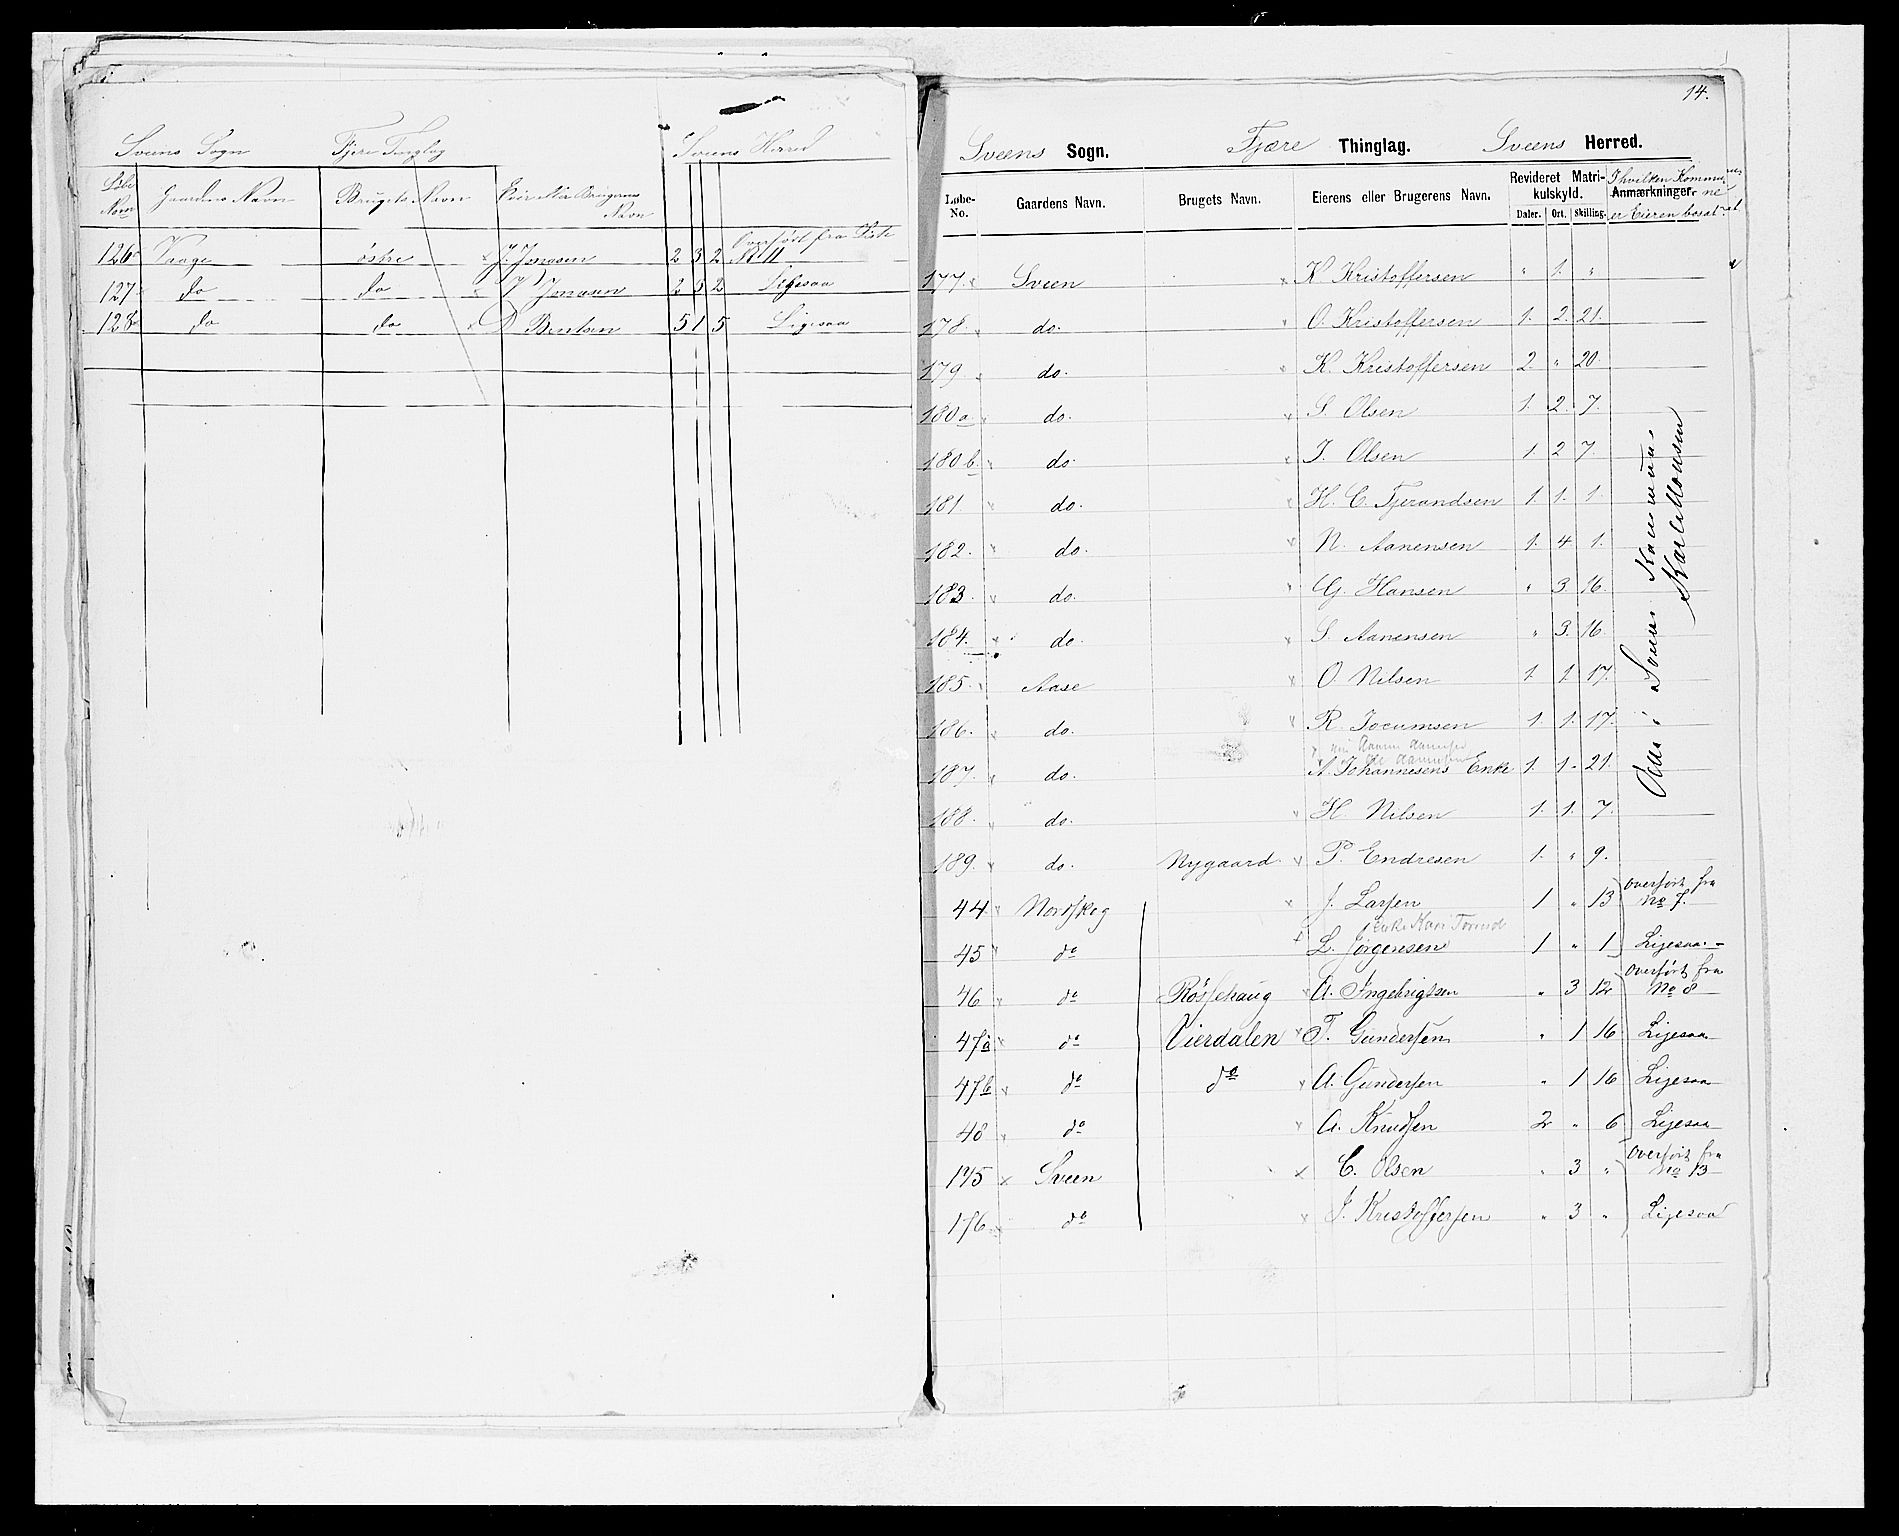 Sveens Sogn Fjære Tinglag Sveens Herred
Løbe Nom Gaardens Navn Brugets Navn Eier eller Brugerens Navn
126 Vaage østre J. Jonasen 2 3 2 Overført fra Liste No 11
127 do do Jonasen 2 5 2 Ligesaa
128 do do Bentsen 5 1 5 Ligesaa
14.
Sveens Sogn. Fjære Thinglag. Sveens Herred.
Løbe-No. Gaardens Navn. Brugets Navn. Eierens eller Brugerens Navn. Revideret Matrikulskyld. Daler. Ort. Skilling. Anmærkninger. I hvilken Kommune er Eieren bosat
177. Sveen K. Kristoffersen " 1. "
178. do. O. Kristoffersen 1. 2. 21.
179 do. K. Kristoffersen 2. " 20
180a do. S. Olsen 1. 2. 7.
180b. do. J. Olsen 1. 2 7.
181 do. H. C. Tjerandsen 1. 1. 1.
182. do. N. Aanensen 1. 4 1.
183. do. G. Hansen " 3 16
184. do. S. Aanensen " 3. 16
185. Aase O. Nilsen 1. 1. 17.
186. do. R. Jocumsen 1. 1. 17.
187. do. A. Johannesens Enke 1. 1. 21.
188. do. H. Nilsen 1. 1. 7.
189. do. Nygaard. P. Endresen 1. " 9.
Alle i Sveens Kommune
44. Nordskog J. Larsen 1 " 13 overført fra No 7.
Enke Kari
45 do L. Jørgensen 1 " 1 Ligesaa.
46 do Røssehaug A. Ingebrigtsen " 3 12 overført fra No 8
47a do Vierdalen T. Gundersen " 1 16 Ligesaa
47b do do A. Gundersen " 1 16 Ligesaa
48 do A. Knudsen 2 " 6 Ligesaa
175 Sveen C. Olsen " 3 " overført fra No 13
176 do J. Kristoffersen " 3 " Ligesaa